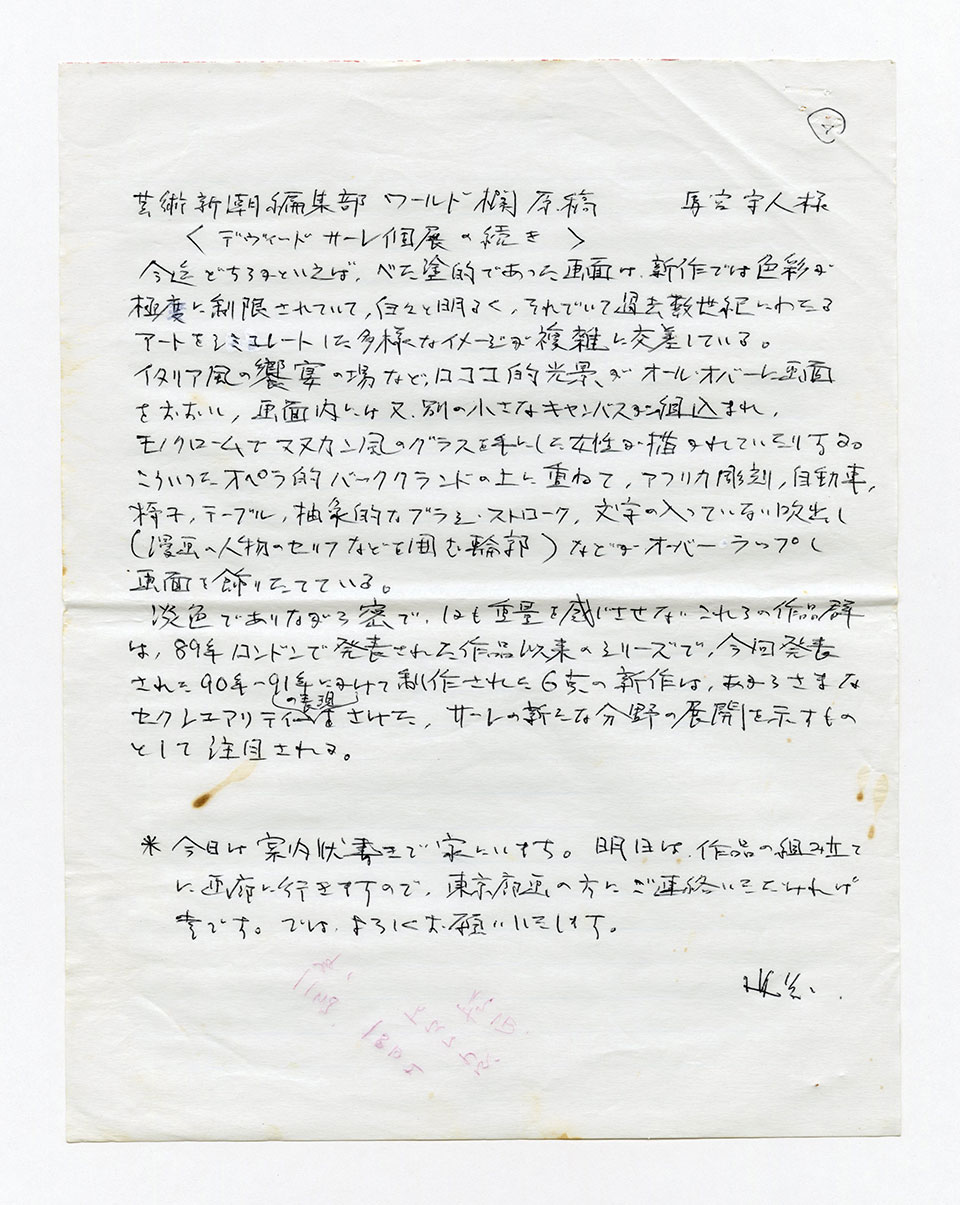 芸術新潮編集部 ワールド欄原稿 馬宮守人様
〈デヴィード サーレ個展の続き〉
今迄どちらかといえば、べた塗的であった画面は、新作では色彩が
極度に制限されていて、白々と明るく、それでいて過去数世紀にわたる
アートをシミュレートした多様なイメージが複雑に交差している。
イタリア風の饗宴の場など、ロココ的光景がオール・オーバーに画面
をおおい、画面内には又、別の小さなキャンバスが組込まれ、
モノクロームでマヌカン風のグラスを手にした女性が描かれていたりする。
こういったオペラ的バックグランドの上に重ねて、アフリカ彫刻、自動車、
椅子、テーブル、抽象的なブラシ・ストローク、文字の入っていない吹出し
(漫画の人物のセリフなどを囲む輪郭)などがオーバー・ラップし
画面を飾りたてている。
淡色でありながら密で、しかも重量を感じさせないこれらの作品群
は、89年ロンドンで発表された作品以来のシリーズで、今回発表
された90年〜91年にかけて制作された6点の新作は、あからさまな
セクシュアリティーの表現をさけた、サーレの新たな分野の展開を示すもの
として注目される。
※ 今日は案内状書きで家にいます。明日は、作品の組み立て
に画廊に行きますので、東京廊画の方にご連絡いただければ
幸です。では、よろしくお願いいたします。